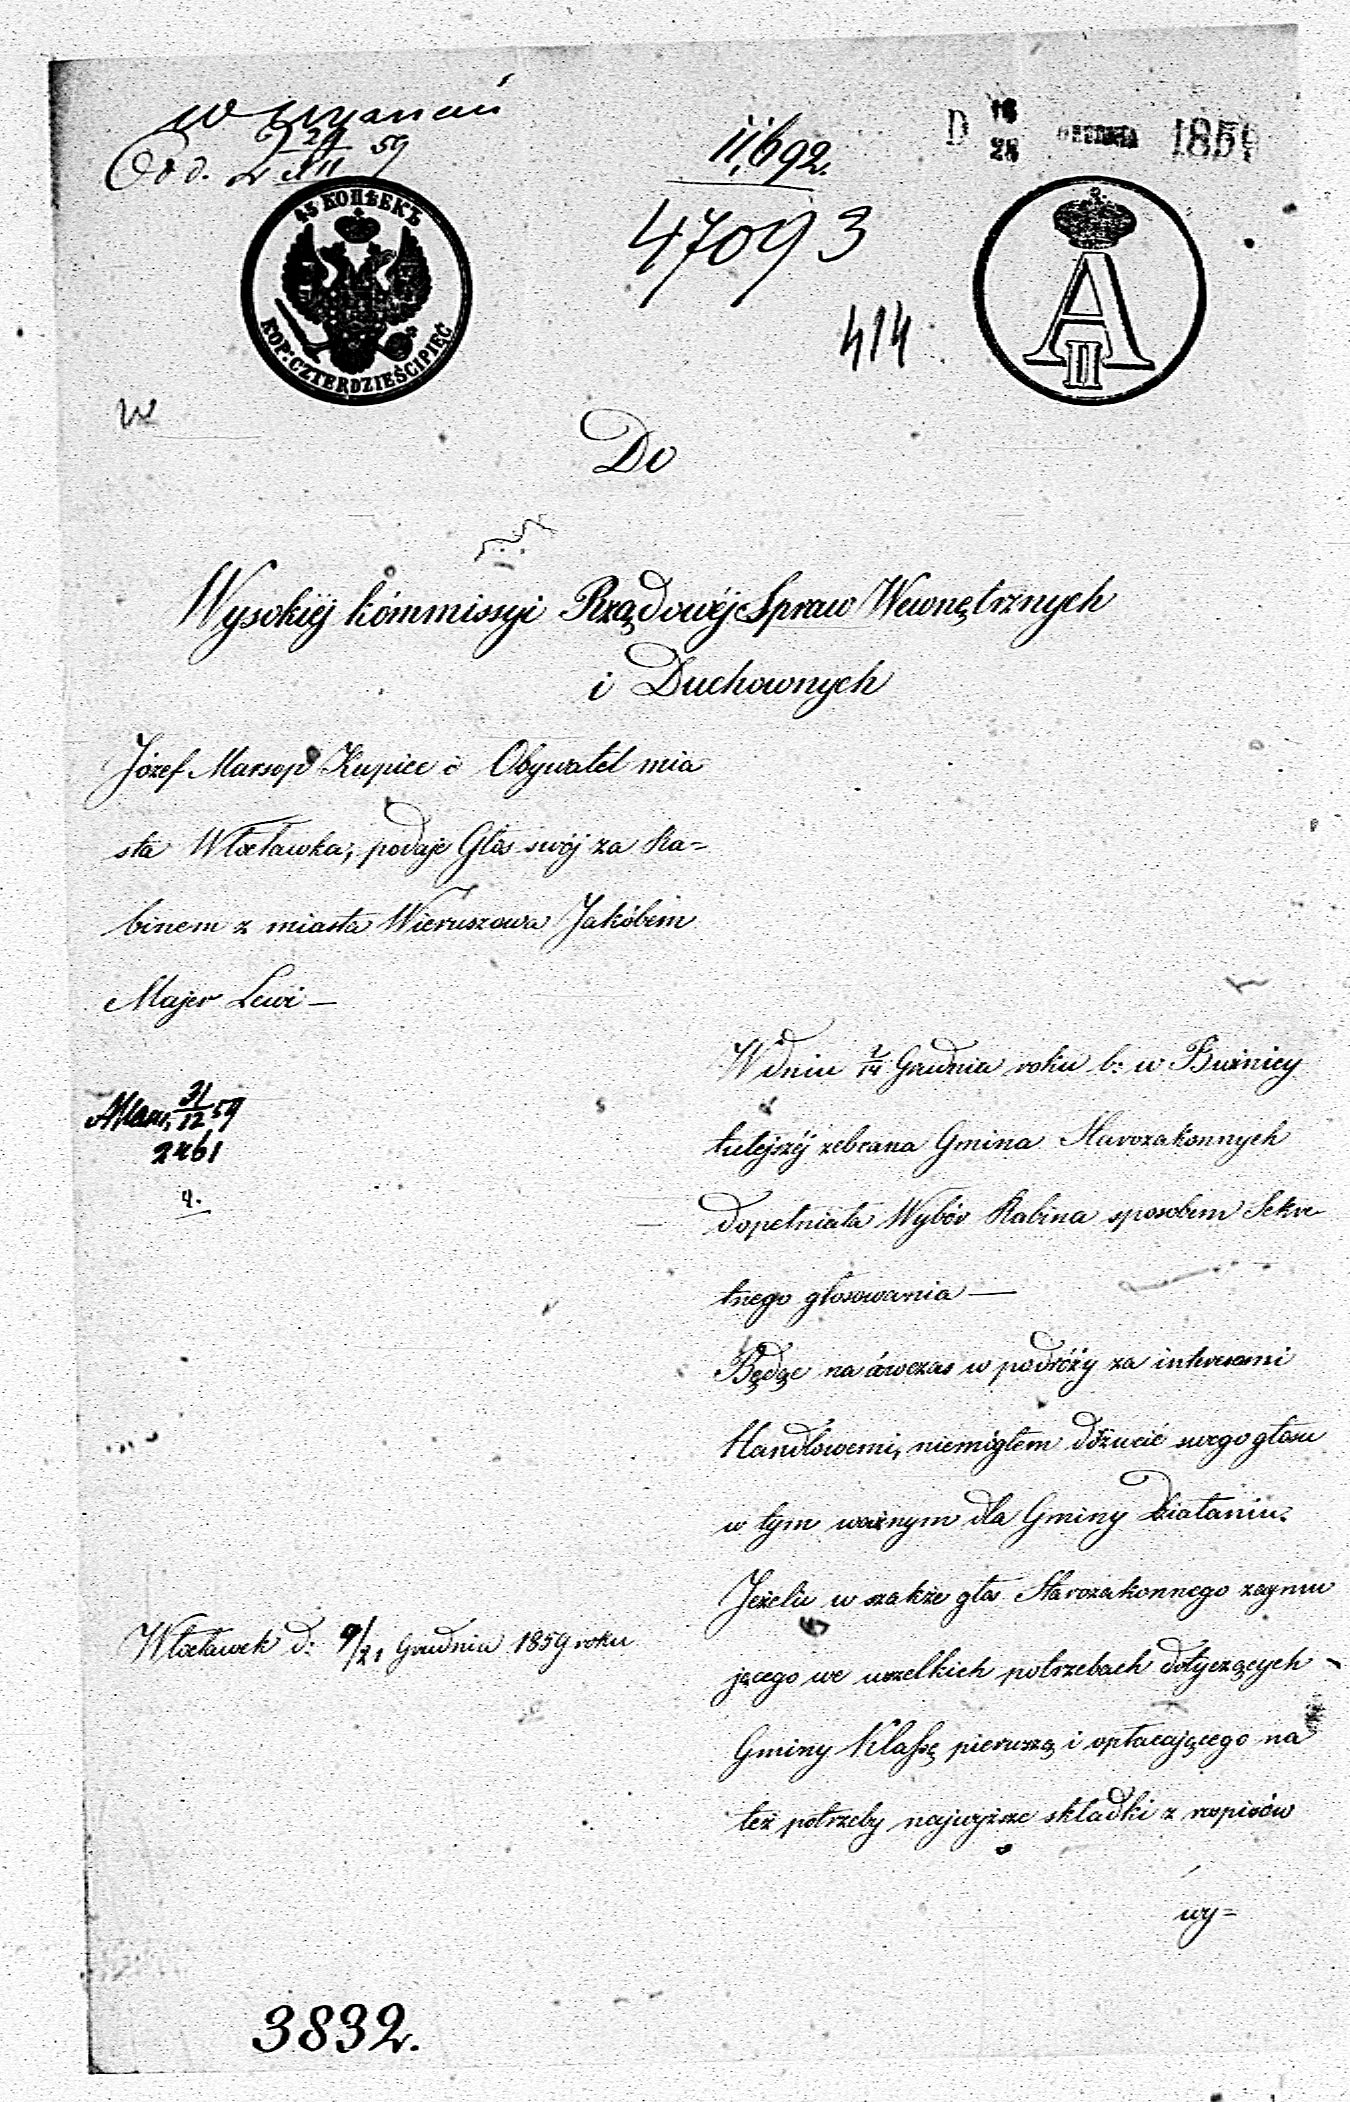 W Wyznań
Od d. 24/XII 59
11,692.
47093
414
D 16/28 GRUDNIA 1859
45 КОПѢЕКЪ
KOP: CZTERDZIEŚCI PIĘĆ
A II
Do
Wysokiéj kómmissyi Rządowéj Spraw Wewnętrznych
i Duchownych
Józef Marsop Kupiec i Obywatel mia
sta Włocławka, podaje Głos swój za Ra-
binem z miasta Wieruszowa Jakóbem
Majer Lewi —
31/12 59
2461
4.
Włocławek d: 9/21 Grudnia 1859 roku
W dniu 2/14 Grudnia roku b: w Bużnicy
tutejszéj zebrana Gmina Starozakonnych
dopełniała Wybór Rabina sposobem Sekre
tnego głosowania —
Będąc na ówczas w podróży za interesami
Handlowemi, niemógłem dorzucić swego głosu
w tym ważnym dla Gminy Działaniu.
Jeżelić wszakże głos Starozakonnego zaymu
jącego we wszelkich potrzebach dotyczących
Gminy Klassę pierwszą i opłacającego na
też potrzeby najwyższe składki z rospisów
wy=
3832.